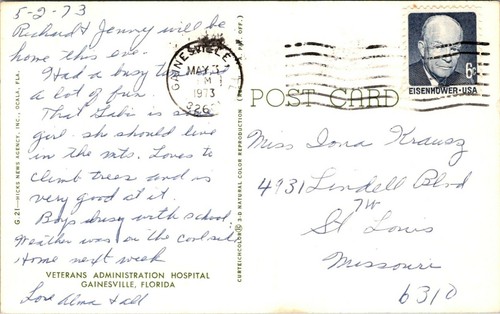 5-2-73
Richard & Jenny will be
home this eve.
Had a busy time
a lot of fun.
That Libbi is
girl. she should live
in the mts. Loves to
climb trees and is
very good at it.
Boys busy with school.
Weather was on the cool side
Home next week
VETERANS ADMINISTRATION HOSPITAL
GAINESVILLE, FLORIDA
Love Alma & all
G 21—HICKS NEWS AGENCY, INC., OCALA, FLA.
CURTEICHCOLOR® 3-D NATURAL COLOR REPRODUCTION
GAINESVILLE
MAY 3
PM
1973
326
POST CARD
6¢
EISENHOWER·USA
Miss Iona Krausz
4931 Lindell Blvd
7W
St Louis
Missouri
6310